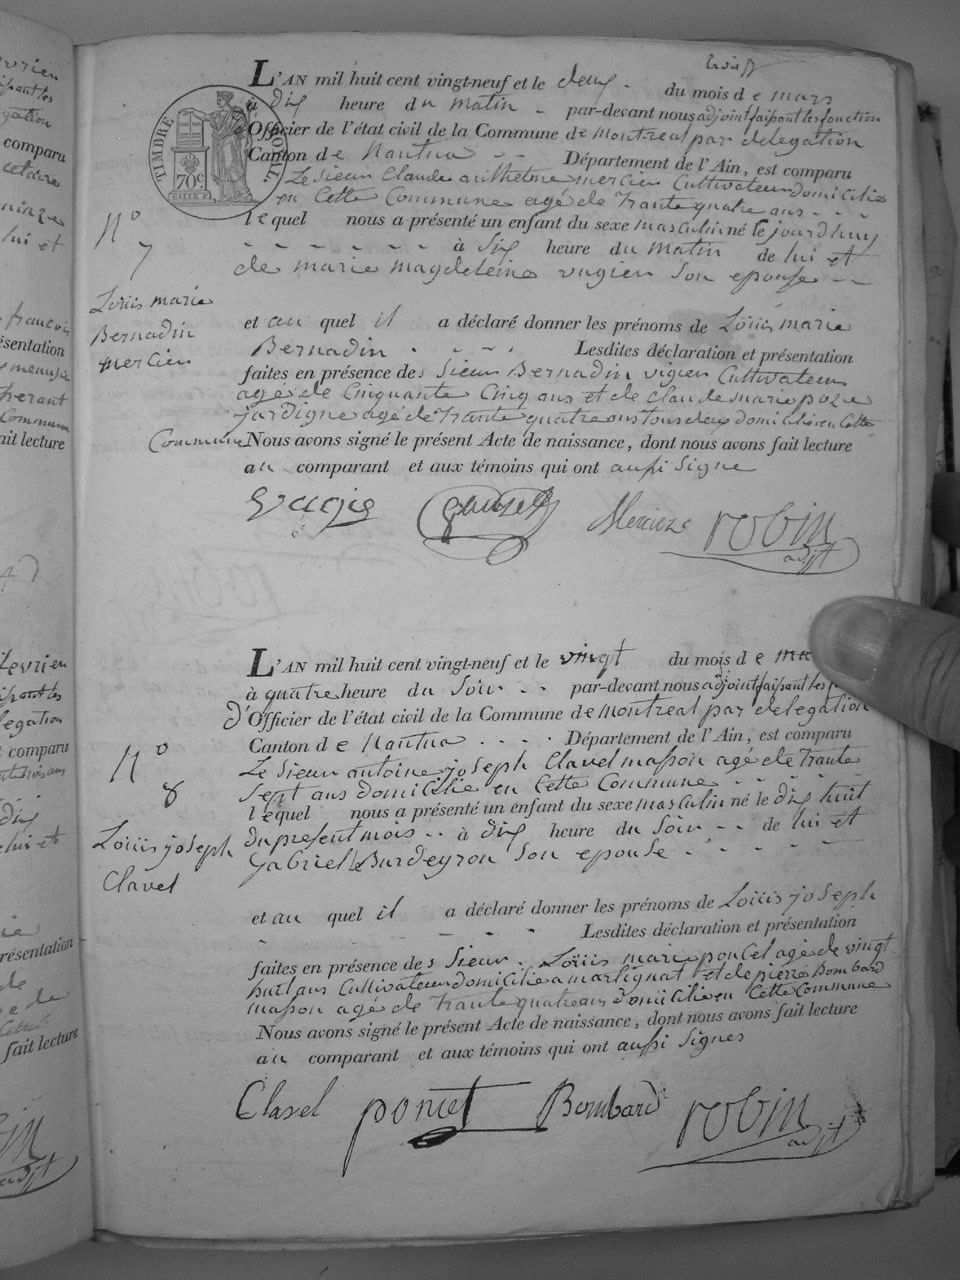 L'AN mil huit cent vingt-neuf et le deux du mois de mars
à dix heure du matin par-devant nous adjoint faisant les fonction
Officier de l'état civil de la Commune de montreal par delegation
Canton de Nantua Département de l'Ain, est comparu
Le sieur Claude anthelme mercier Cultivateur domicilié
en Cette Commune agé de trante quatre ans
lequel nous a présenté un enfant du sexe masculin né le jourdhuy
à six heure du matin de lui et
de marie magdeleine vugien son epouse
et au quel il a déclaré donner les prénoms de Loüis marie
Bernadin Lesdites déclaration et présentation
faites en présence des sieur Bernadin vigien Cultivateur
agé de Cinquante Cinq ans et de claude marie
agé de trante quatre ans tous deux domicilié en Cette
Commune Nous avons signé le présent Acte de naissance, dont nous avons fait lecture
au comparant et aux témoins qui ont aussi signe
Mercier robin
adjt
TIMBRE ROYAL
70c
No
7
Loüis marie
Bernadin
mercier
L'AN mil huit cent vingt-neuf et le vingt du mois de
à quatre heure du soir par-devant nous adjoint faisant les
d'Officier de l'état civil de la Commune de montreal par delegation
Canton de Nantua Département de l'Ain, est comparu
Le sieur antoine joseph Clavel masson agé de trante
sept ans domicilié en Cette Commune
lequel nous a présenté un enfant du sexe masculin né le dix huit
du present mois à dix heure du soir de lui et
gabriel Burdeyron son epouse
et au quel il a déclaré donner les prénoms de Loüis joseph
Lesdites déclaration et présentation
faites en présence des sieur Loüis marie poncet agé de vingt
huit ans Cultivateur domicilié a martignat et de pierre Bombard
masson agé de trante quatre ans domicilié en Cette Commune
Nous avons signé le présent Acte de naissance, dont nous avons fait lecture
au comparant et aux témoins qui ont aussi signes
Clavel poncet Bombard robin
adjt
No
8
Loüis joseph
Clavel